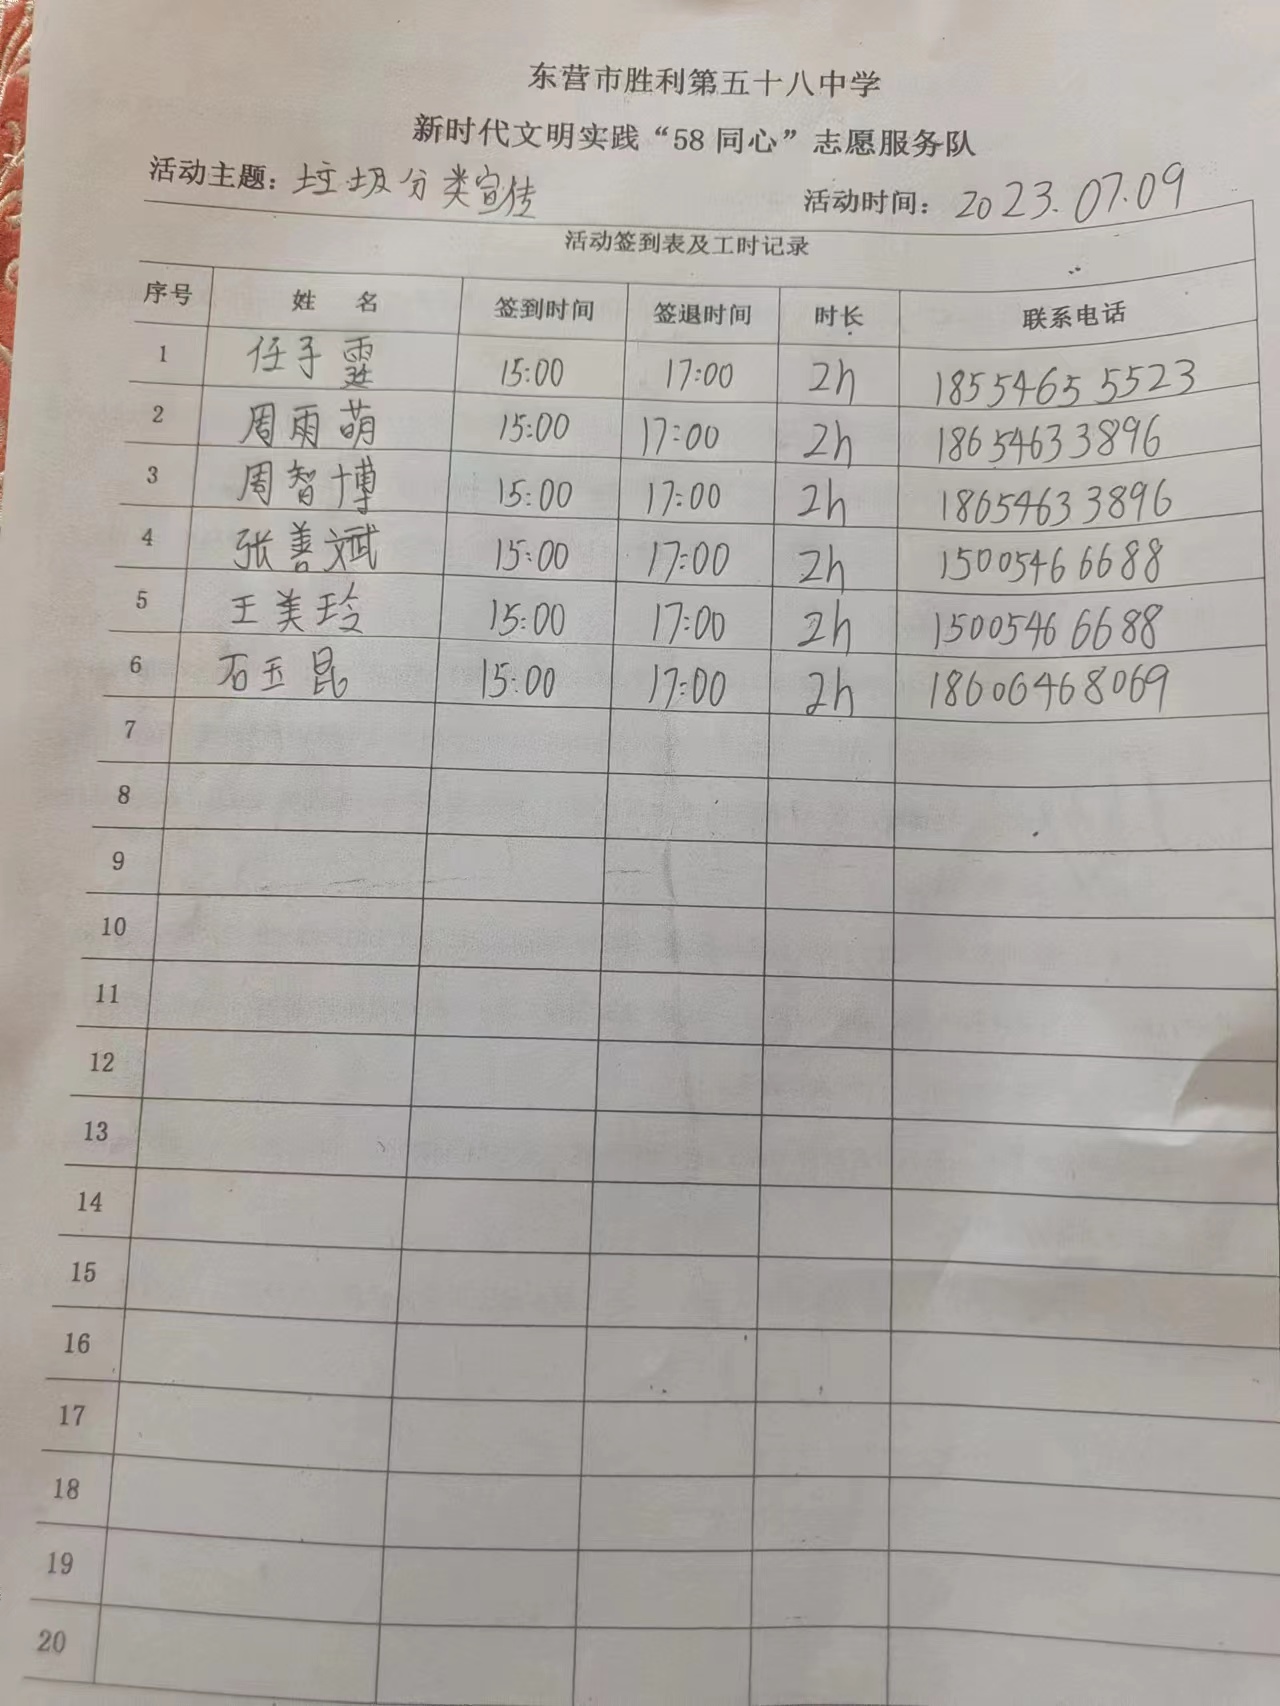 东营市胜利第五十八中学
新时代文明实践“58同心”志愿服务队
活动主题：垃圾分类宣传 活动时间：2023.07.09
活动签到表及工时记录
序号 姓 名 签到时间 签退时间 时长 联系电话
1 任子霆 15:00 17:00 2h 18554655523
2 周雨萌 15:00 17:00 2h 18654633896
3 周智博 15:00 17:00 2h 18654633896
4 张善斌 15:00 17:00 2h 15005466688
5 王美玲 15:00 17:00 2h 15005466688
6 石玉昆 15:00 17:00 2h 18606468069
7
8
9
10
11
12
13
14
15
16
17
18
19
20